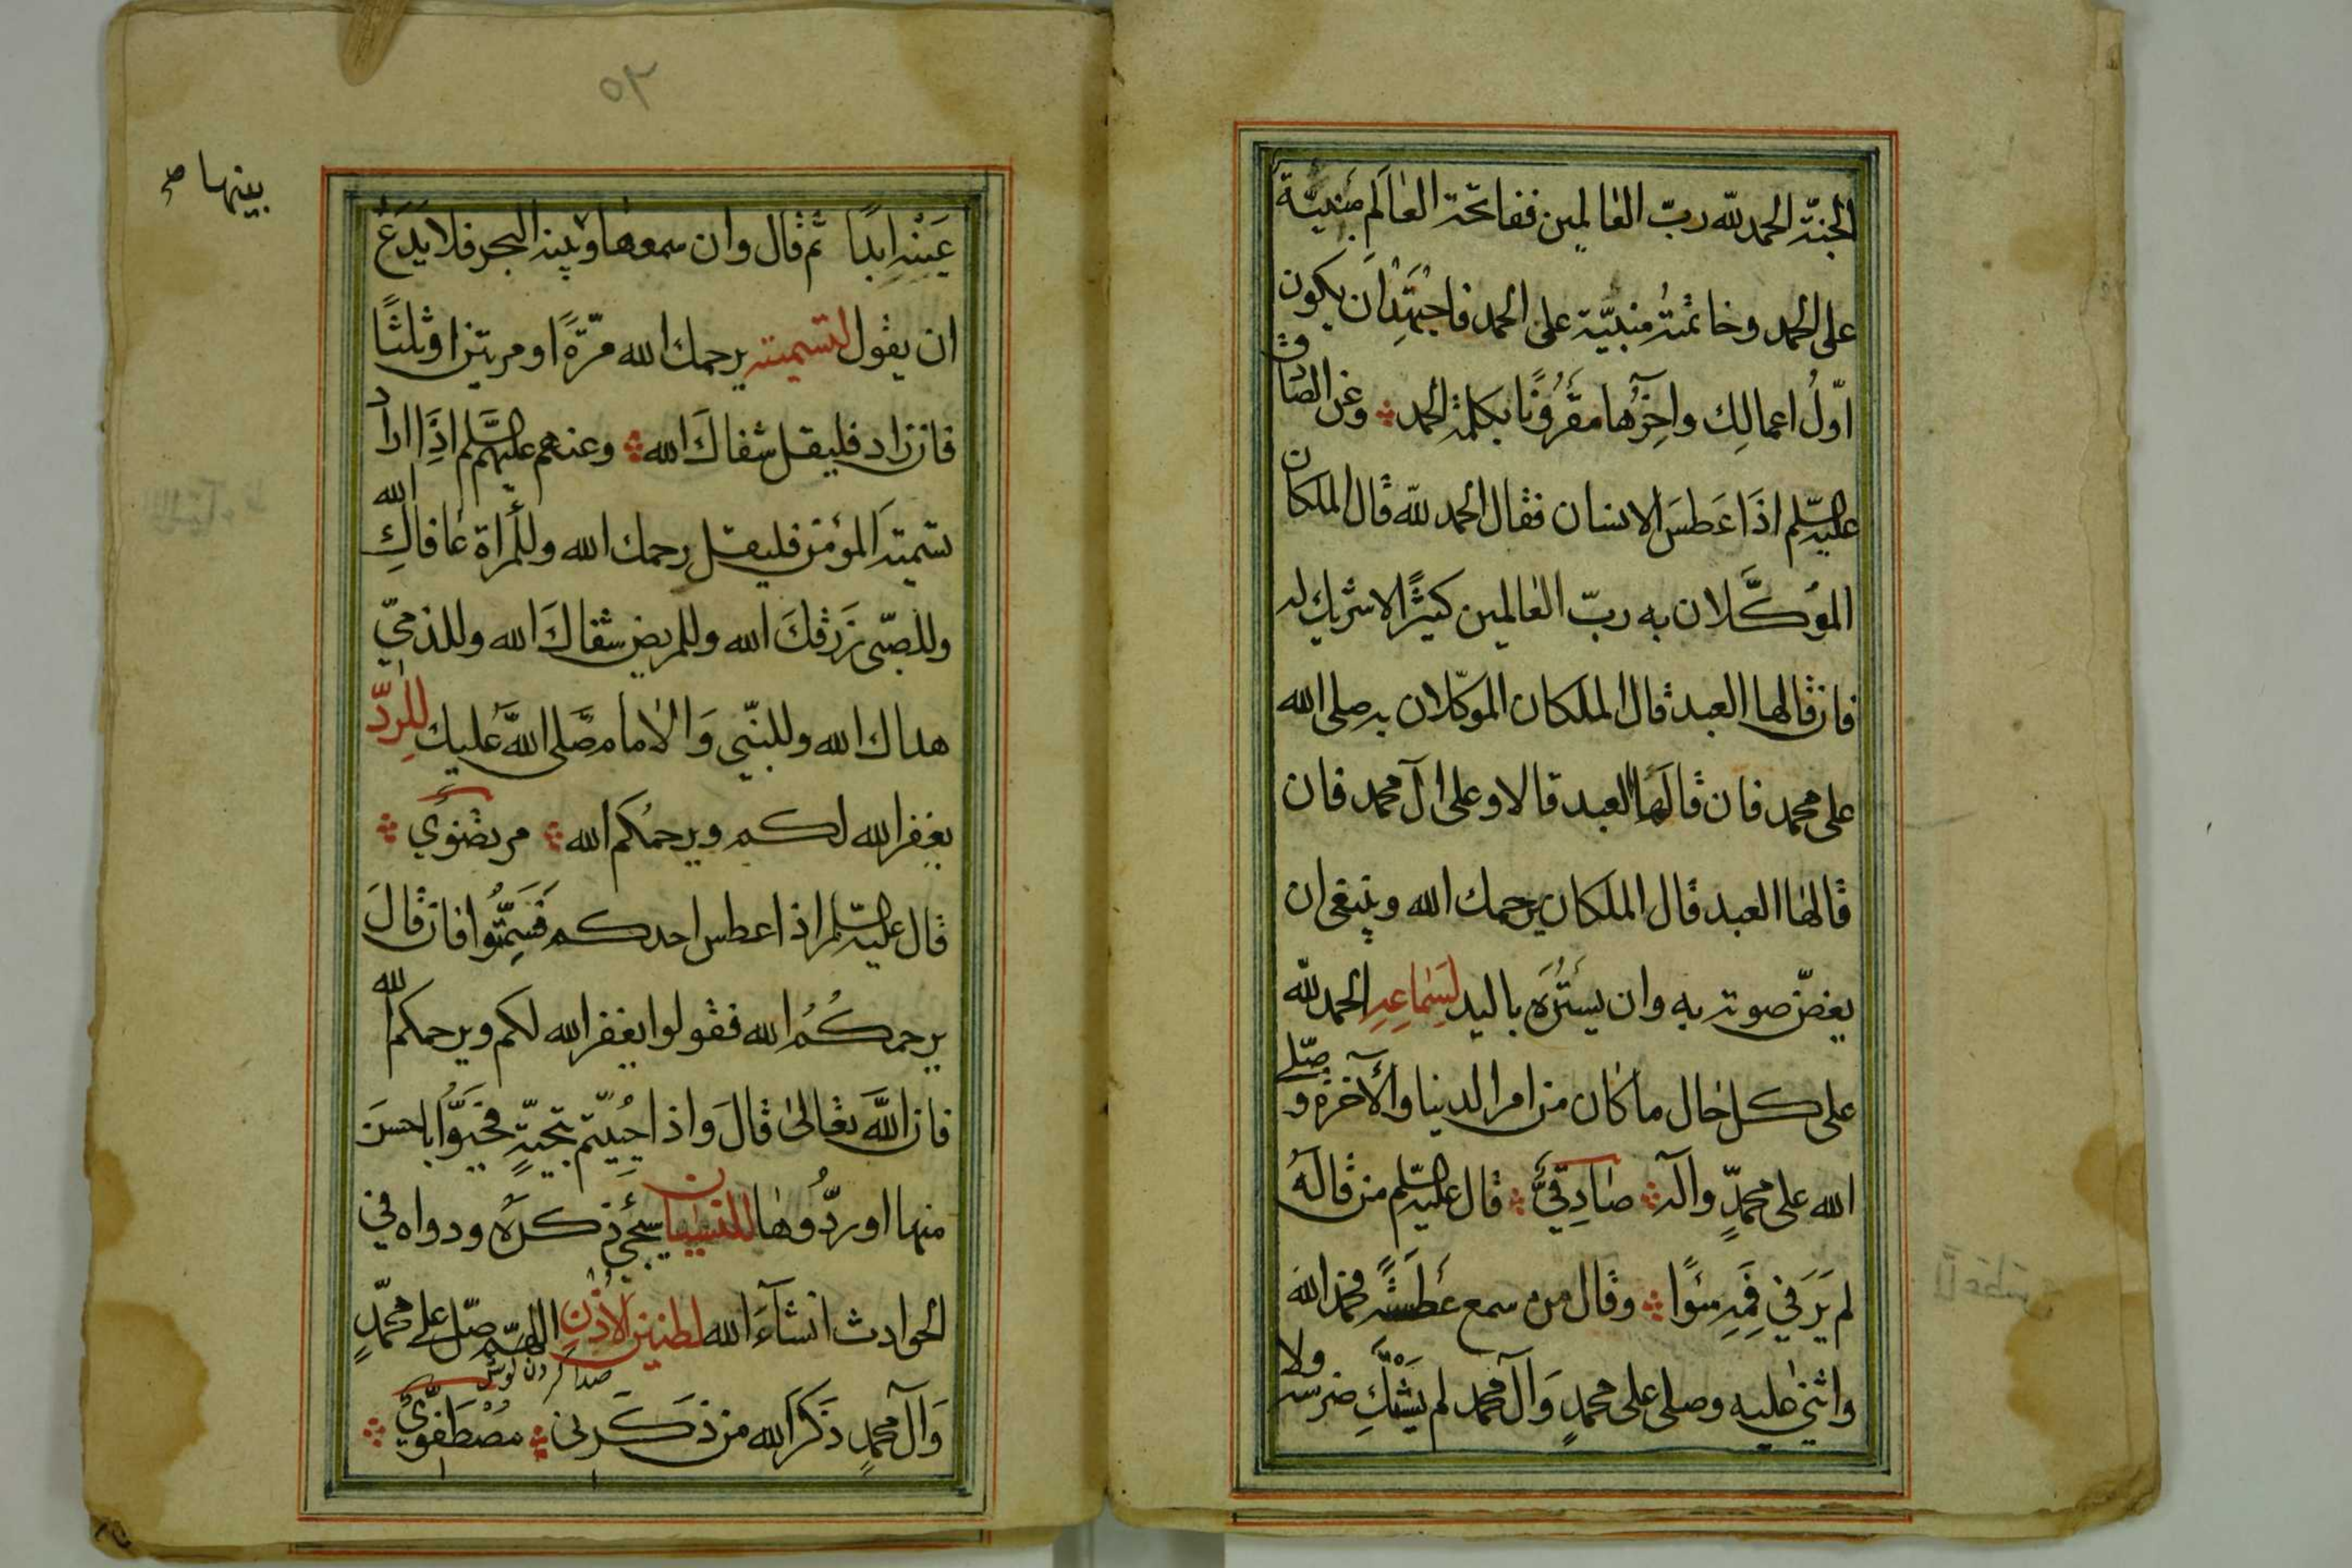 الجنّة الحمد لله ربّ العالمين ففاتحة العالم مبنيّة
على الحمد وخاتمته مبنيّة على الحمد فاجتهد ان يكون
اوّل اعمالك واخرها مقرونا بكلمة الحمد وعن الصادق
عليه السّلم اذا عطس الانسان فقال الحمد لله قال الملكان
الموكّلان به ربّ العالمين كثيرًا لا شريك له
فان قالها العبد قال الملكان الموكّلان به صلى الله
على محمد فان قالها العبد قالا وعلى آل محمد فان
قالها العبد قال الملكان يرحمك الله وينبغى ان
يغضّ صوته به وان يستره باليد لسماعه الحمد لله
على كل حال ما كان من امر الدنيا والآخرة وصلّى
الله على محمّدٍ وآله صادقيّ قال عليه السّلم من قاله
لم ير في فمه سوًا وقال من سمع عطسة فحمد الله
واثنى عليه وصلى على محمدٍ وَآل محمد لم يشتك ضرسه ولا
٥٢
بينها صح
عينه ابدًا ثم قال وان سمعها وبينه البحر فلا يدع
ان يقول لتسميته يرحمك الله مرّةً او مرتين او ثلثًا
فان زاد فليقل شفاك الله وعنهم عليهم السّلم اذا اراد
تسميته المؤمن فليقل يرحمك الله وللمراة عافاك الله
وللصبّى زرقك الله وللمريض شفاك الله وللذمّي
هداك الله وللنبّي وَالامام صَلى اللهُ عليك للردّ
يغفر الله لكم ويرحمكم الله مرتضويّ
قال عليه السّلم اذا عطس احدكم فسمّتوا فان قالَ
يرحمكُم الله فقولوا يغفر الله لكم ويرحمكم الله
فان اللهَ تعالىٰ قالَ وَاذا حُيّيتم بتحيّةٍ فحَيّوا باحسنَ
منها او ردُّوها للنسيان سيجيء ذكره ودواه في
الحوادث انشآءَ الله لطنين الاذن اللهمّ صلّ على محمّدٍ
صدا كردن كوش
وَآل محمدٍ ذَكَرَ الله من ذَكَرنى مصْطَفَويّ